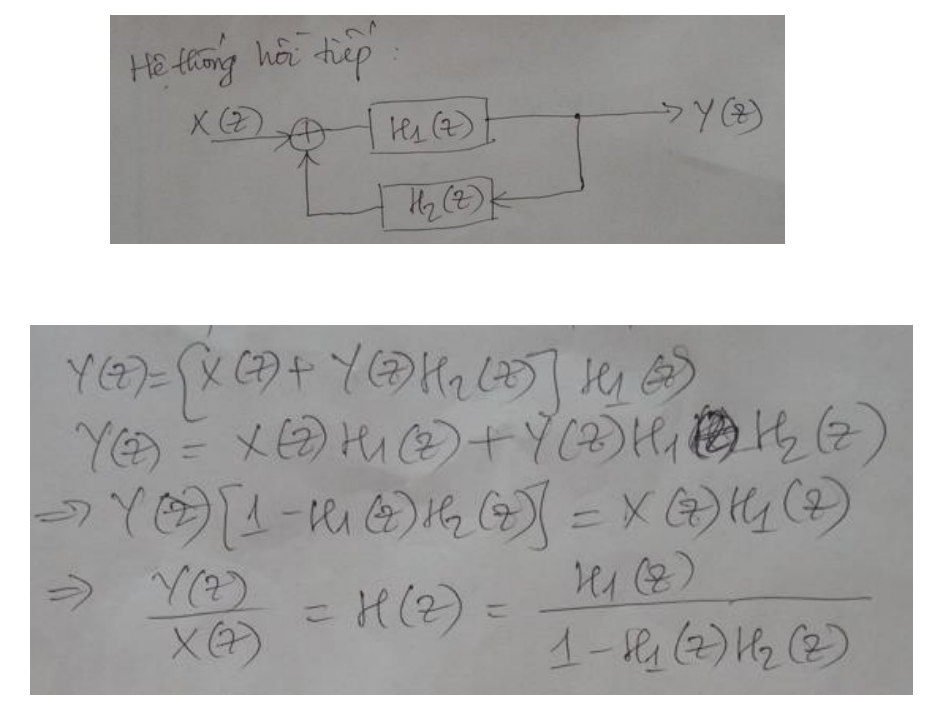 Hệ thống hồi tiếp:
X(z) + H1(z) Y(z)
H2(z)
Y(z)=[X(z)+ Y(z)H2(z)] H1(z)
Y(z) = X(z)H1(z)+Y(z)H1(z)H2(z)
=> Y(z)[1-H1(z)H2(z)] = X(z)H1(z)
=> Y(z)/X(z) = H(z) = H1(z)/1-H1(z)H2(z)